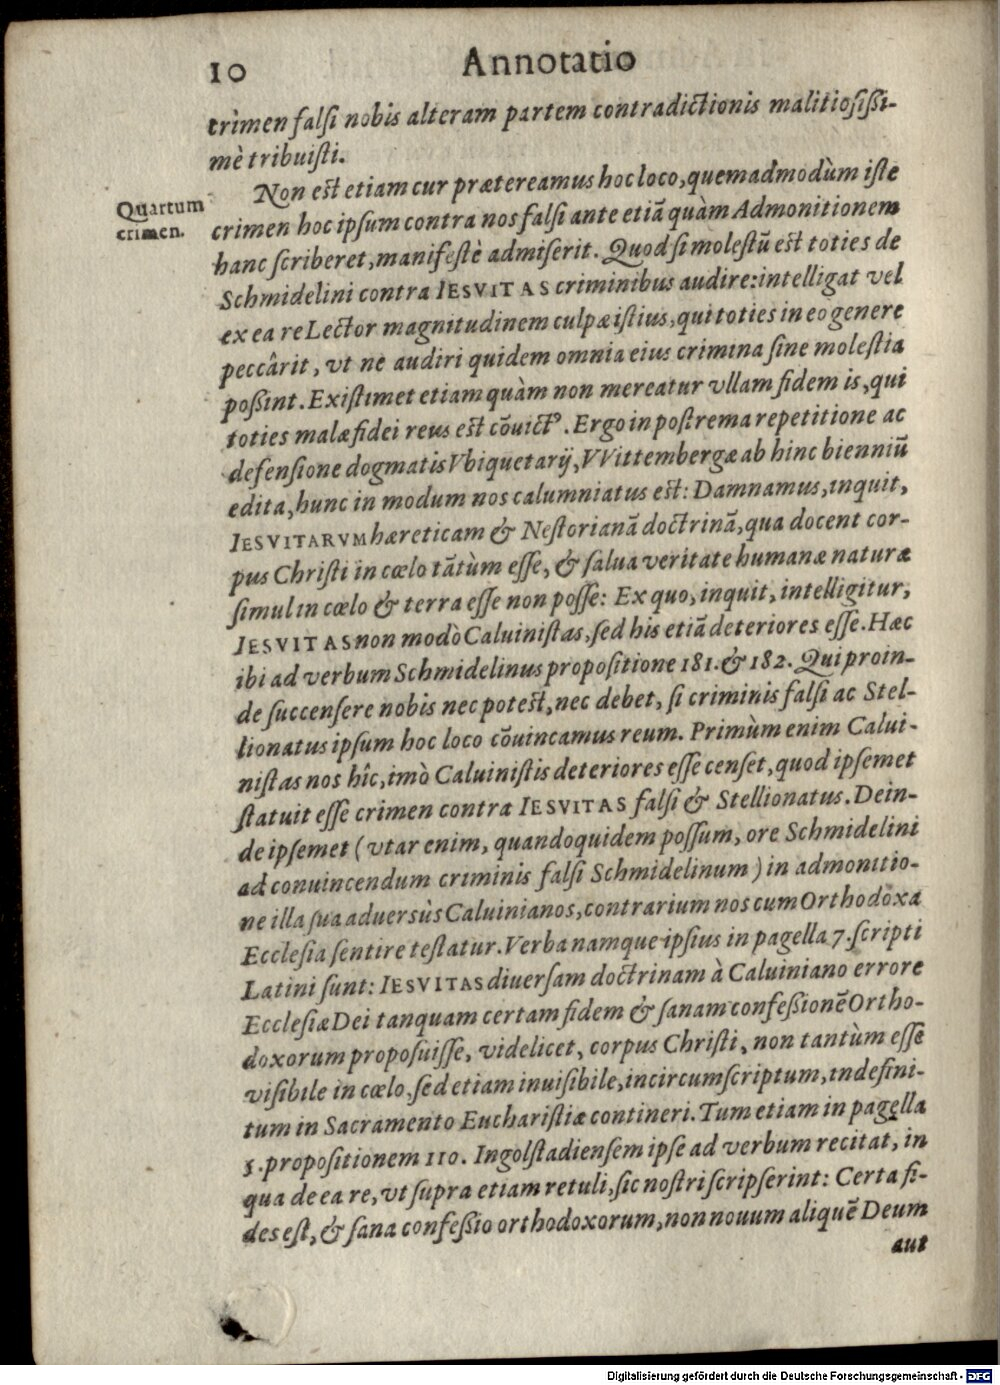 10 Annotatio
crimen falſi nobis alteram partem contradictionis malitioſißi-
mè tribuiſti.
Quartum
crimen.
Non est etiam cur prætereamus hoc loco, quemadmodùm iſte
crimen hoc ipſum contra nos falſi ante etiã quàm Admonitionem
hanc ſcriberet, manifeſtè admiſerit. Quod ſi moleſtũ est toties de
Schmidelini contra IESVITAS criminibus audire: intelligat vel
ex ea re Lector magnitudinem culpæ iſtius, qui toties in eo genere
peccârit, vt ne audiri quidem omnia eius crimina ſine moleſtia
poßint. Exiſtimet etiam quàm non mereatur vllam fidem is, qui
toties malæ fidei reus est cõuictꝰ. Ergo in poſtrema repetitione ac
defenſione dogmatis Vbiquetarij, VVittembergæ ab hinc bienniũ
edita, hunc in modum nos calumniatus est: Damnamus, inquit,
IESVITARVM hæreticam & Neſtorianã doctrinã, qua docent cor-
pus Chriſti in cœlo tãtùm eſſe, & ſalua veritate humanæ naturæ
ſimul in cœlo & terra eſſe non poſſe: Ex quo, inquit, intelligitur,
IESVITAS non modò Caluiniſtas, ſed his etiã deteriores eſſe. Hæc
ibi ad verbum Schmidelinus propoſitione 181. & 182. Qui proin-
de ſuccenſere nobis nec potest, nec debet, ſi criminis falſi ac Stel-
lionatus ipſum hoc loco cõuincamus reum. Primùm enim Calui-
niſtas nos hîc, imò Caluiniſtis deteriores eſſe cenſet, quod ipſemet
ſtatuit eſſe crimen contra IESVITAS falſi & Stellionatus. Dein-
de ipſemet (vtar enim, quandoquidem poſſum, ore Schmidelini
ad conuincendum criminis falſi Schmidelinum) in admonitio-
ne illa ſua aduerſùs Caluinianos, contrarium nos cum Orthodoxa
Eccleſia ſentire teſtatur. Verba namque ipſius in pagella 7. ſcripti
Latini ſunt: IESVITAS diuerſam doctrinam à Caluiniano errore
Eccleſiæ Dei tanquam certam fidem & ſanam confeßionẽ Ortho-
doxorum propoſuiſſe, videlicet, corpus Chriſti, non tantùm eſſe
viſibile in cœlo, ſed etiam inuiſibile, incircumſcriptum, indefini-
tum in Sacramento Euchariſtiæ contineri. Tum etiam in pagella
5. propoſitionem 110. Ingolſtadienſem ipſe ad verbum recitat, in
qua de ea re, vt ſupra etiam retuli, ſic noſtri ſcripſerint: Certa fi-
des eſt, & ſana confeßio orthodoxorum, non nouum aliquẽ Deum
aut
Digitalisierung gefördert durch die Deutsche Forschungsgemeinschaft - DFG